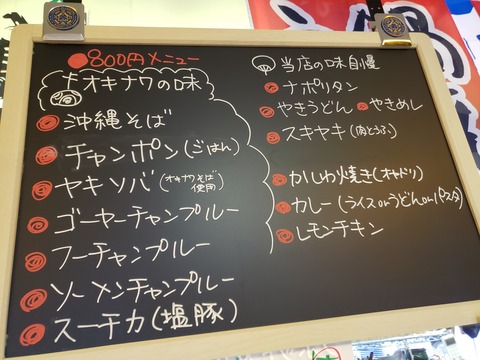 800円メニュー
オキナワの味
沖縄そば
チャンポン(ごはん)
ヤキソバ(オキナワそば使用)
ゴーヤーチャンプルー
フーチャンプルー
ソーメンチャンプルー
スーチカ(塩豚)
当店の味自慢
ナポリタン
やきうどん やきめし
スキヤキ(肉とうふ)
かしわ焼き(オヤドリ)
カレー(ライスorうどんorパスタ)
レモンチキン